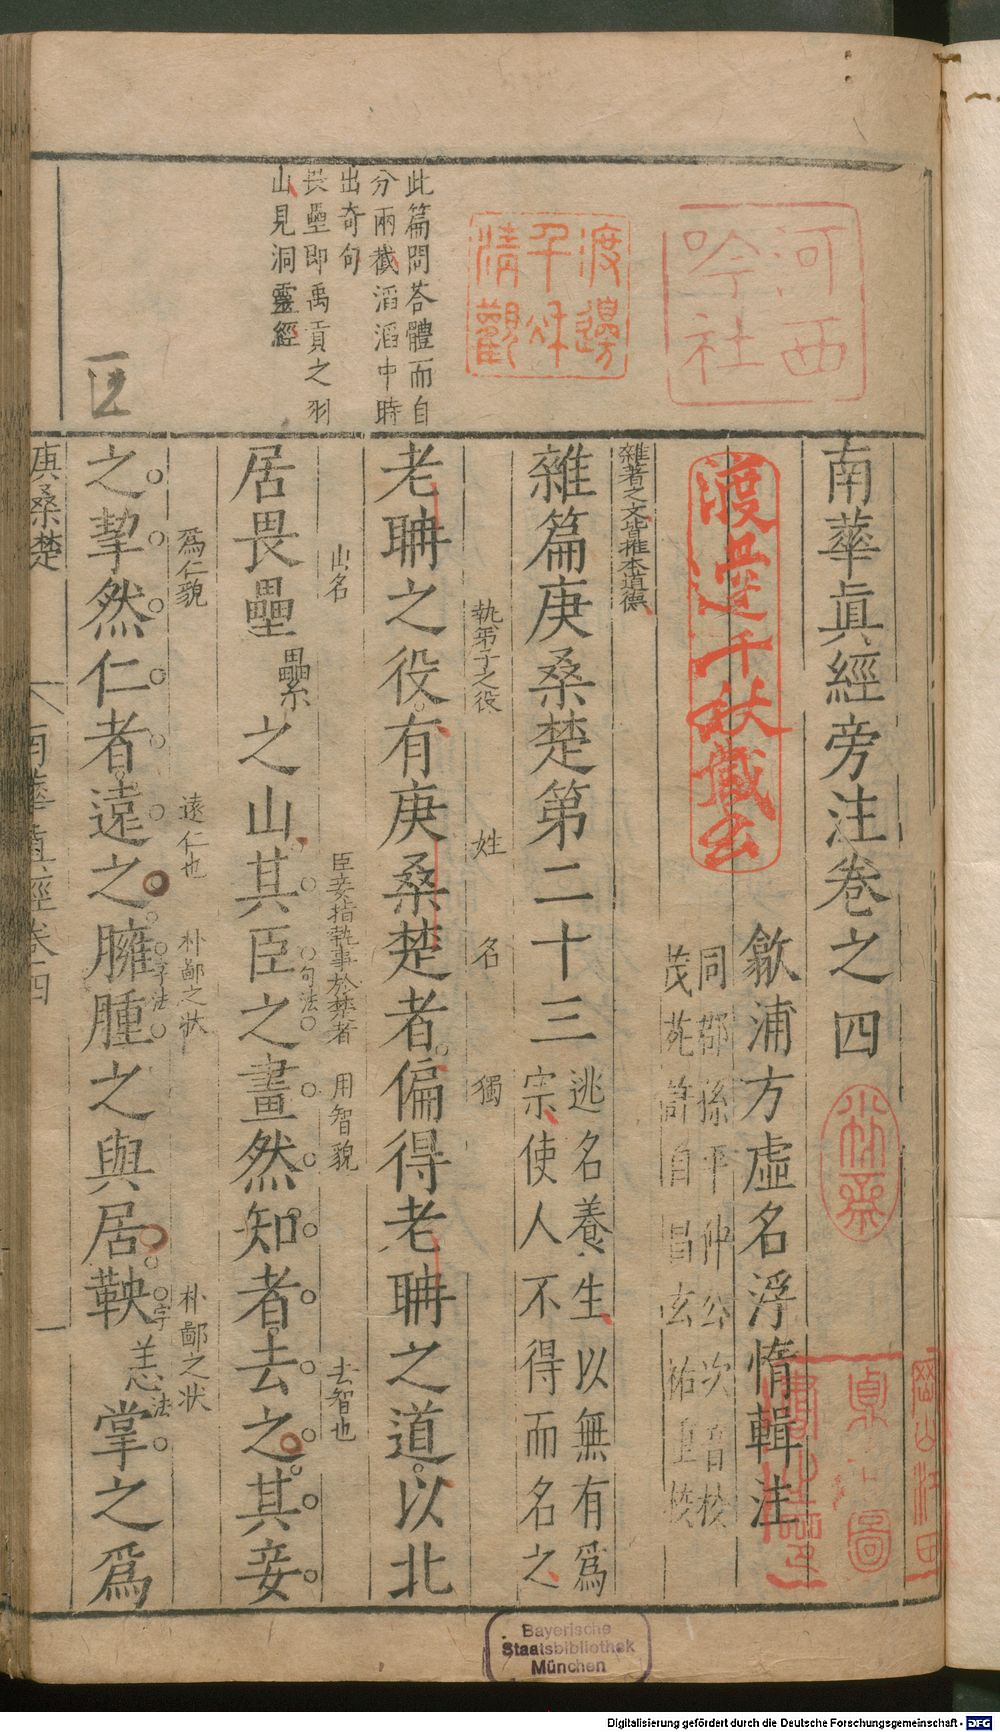 此篇問荅體而自
分兩截滔滔中時
出奇句
畏壘即禹貢之羽
山見洞靈經
河西
吟社
渡邊
千秋
清觀
南華眞經旁注卷之四
渡邊千秋藏書
歙浦方虛名浮惰輯注
同郡孫平仲公次晉校
茂苑許自昌玄祐重校
雜著之文皆推本道德
雜篇庚桑楚第二十三
逃名養生以無有爲
宗使人不得而名之
執弟子之役 姓 名 獨
老聃之役有庚桑楚者偏得老聃之道以北
山名 臣妾指執事於楚者 用智貌 去智也
居畏壘纍之山其臣之畫然知者去之其妾
句法
爲仁貌 遠仁也 朴鄙之狀 朴鄙之狀
之挈然仁者遠之臃腫之與居鞅恙掌之爲
字法 字法
庚桑楚 南華眞經卷四 一
Bayerische
Staatsbibliothek
München
Digitalisierung gefördert durch die Deutsche Forschungsgemeinschaft - DFG